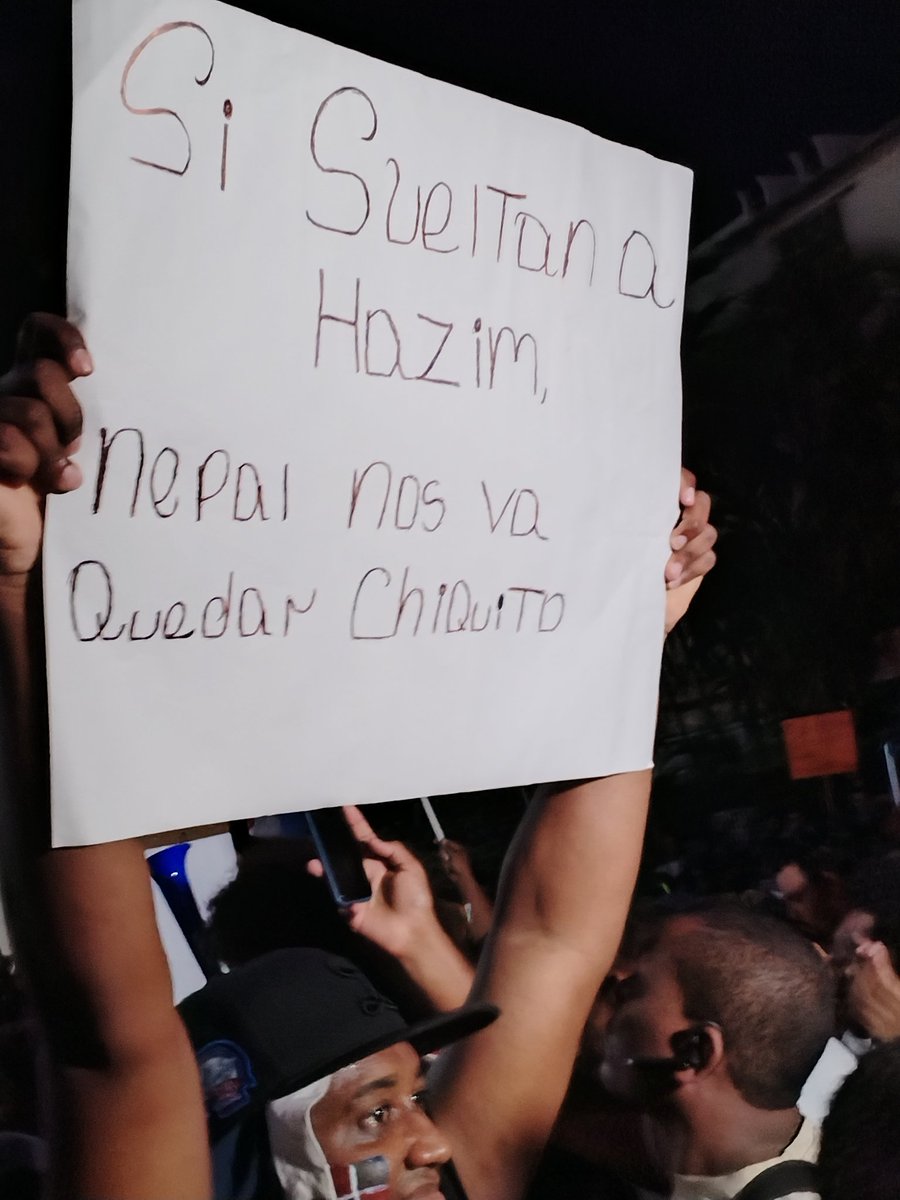 Si Sueltan a
Hazim,
nepal nos va
Quedar Chiquito